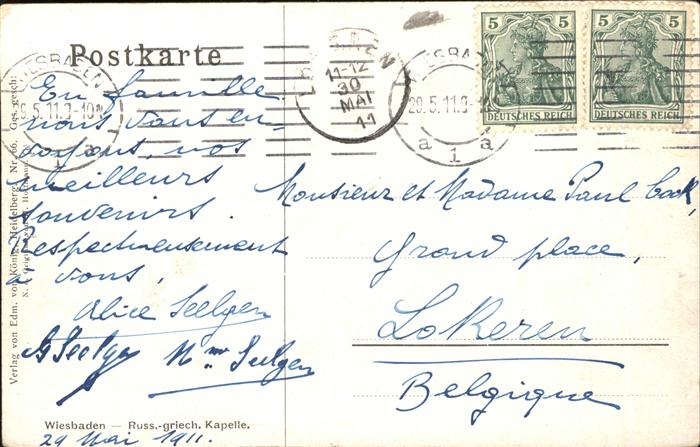 Postkarte
En famille
nous vous en-
voyons, nos
meilleurs
souvenirs.
Respectueusement
à vous,
Alice Seelgen
G Seelgen Mme Seelgen
Wiesbaden — Russ.-griech. Kapelle.
29 Mai 1911.
Verlag von Edm. von König, Heidelberg. Nr. 66. Ges. gesch.
WIESBADEN
29.5.11.9-10
a 1 a
11-12
30
MAI
11
WIESBADEN
29.5.11.9-
a 1 a
5 5
DEUTSCHES REICH
5 5
DEUTSCHES REICH
Monsieur et Madame Paul Cock,
Grand place,
Lokeren
Belgique